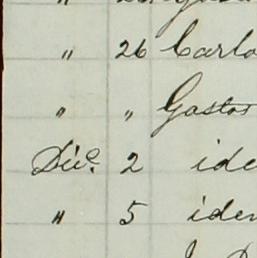 " 26 Carlo
" " Gastos
Dic.e 2 ide
" 5 iden